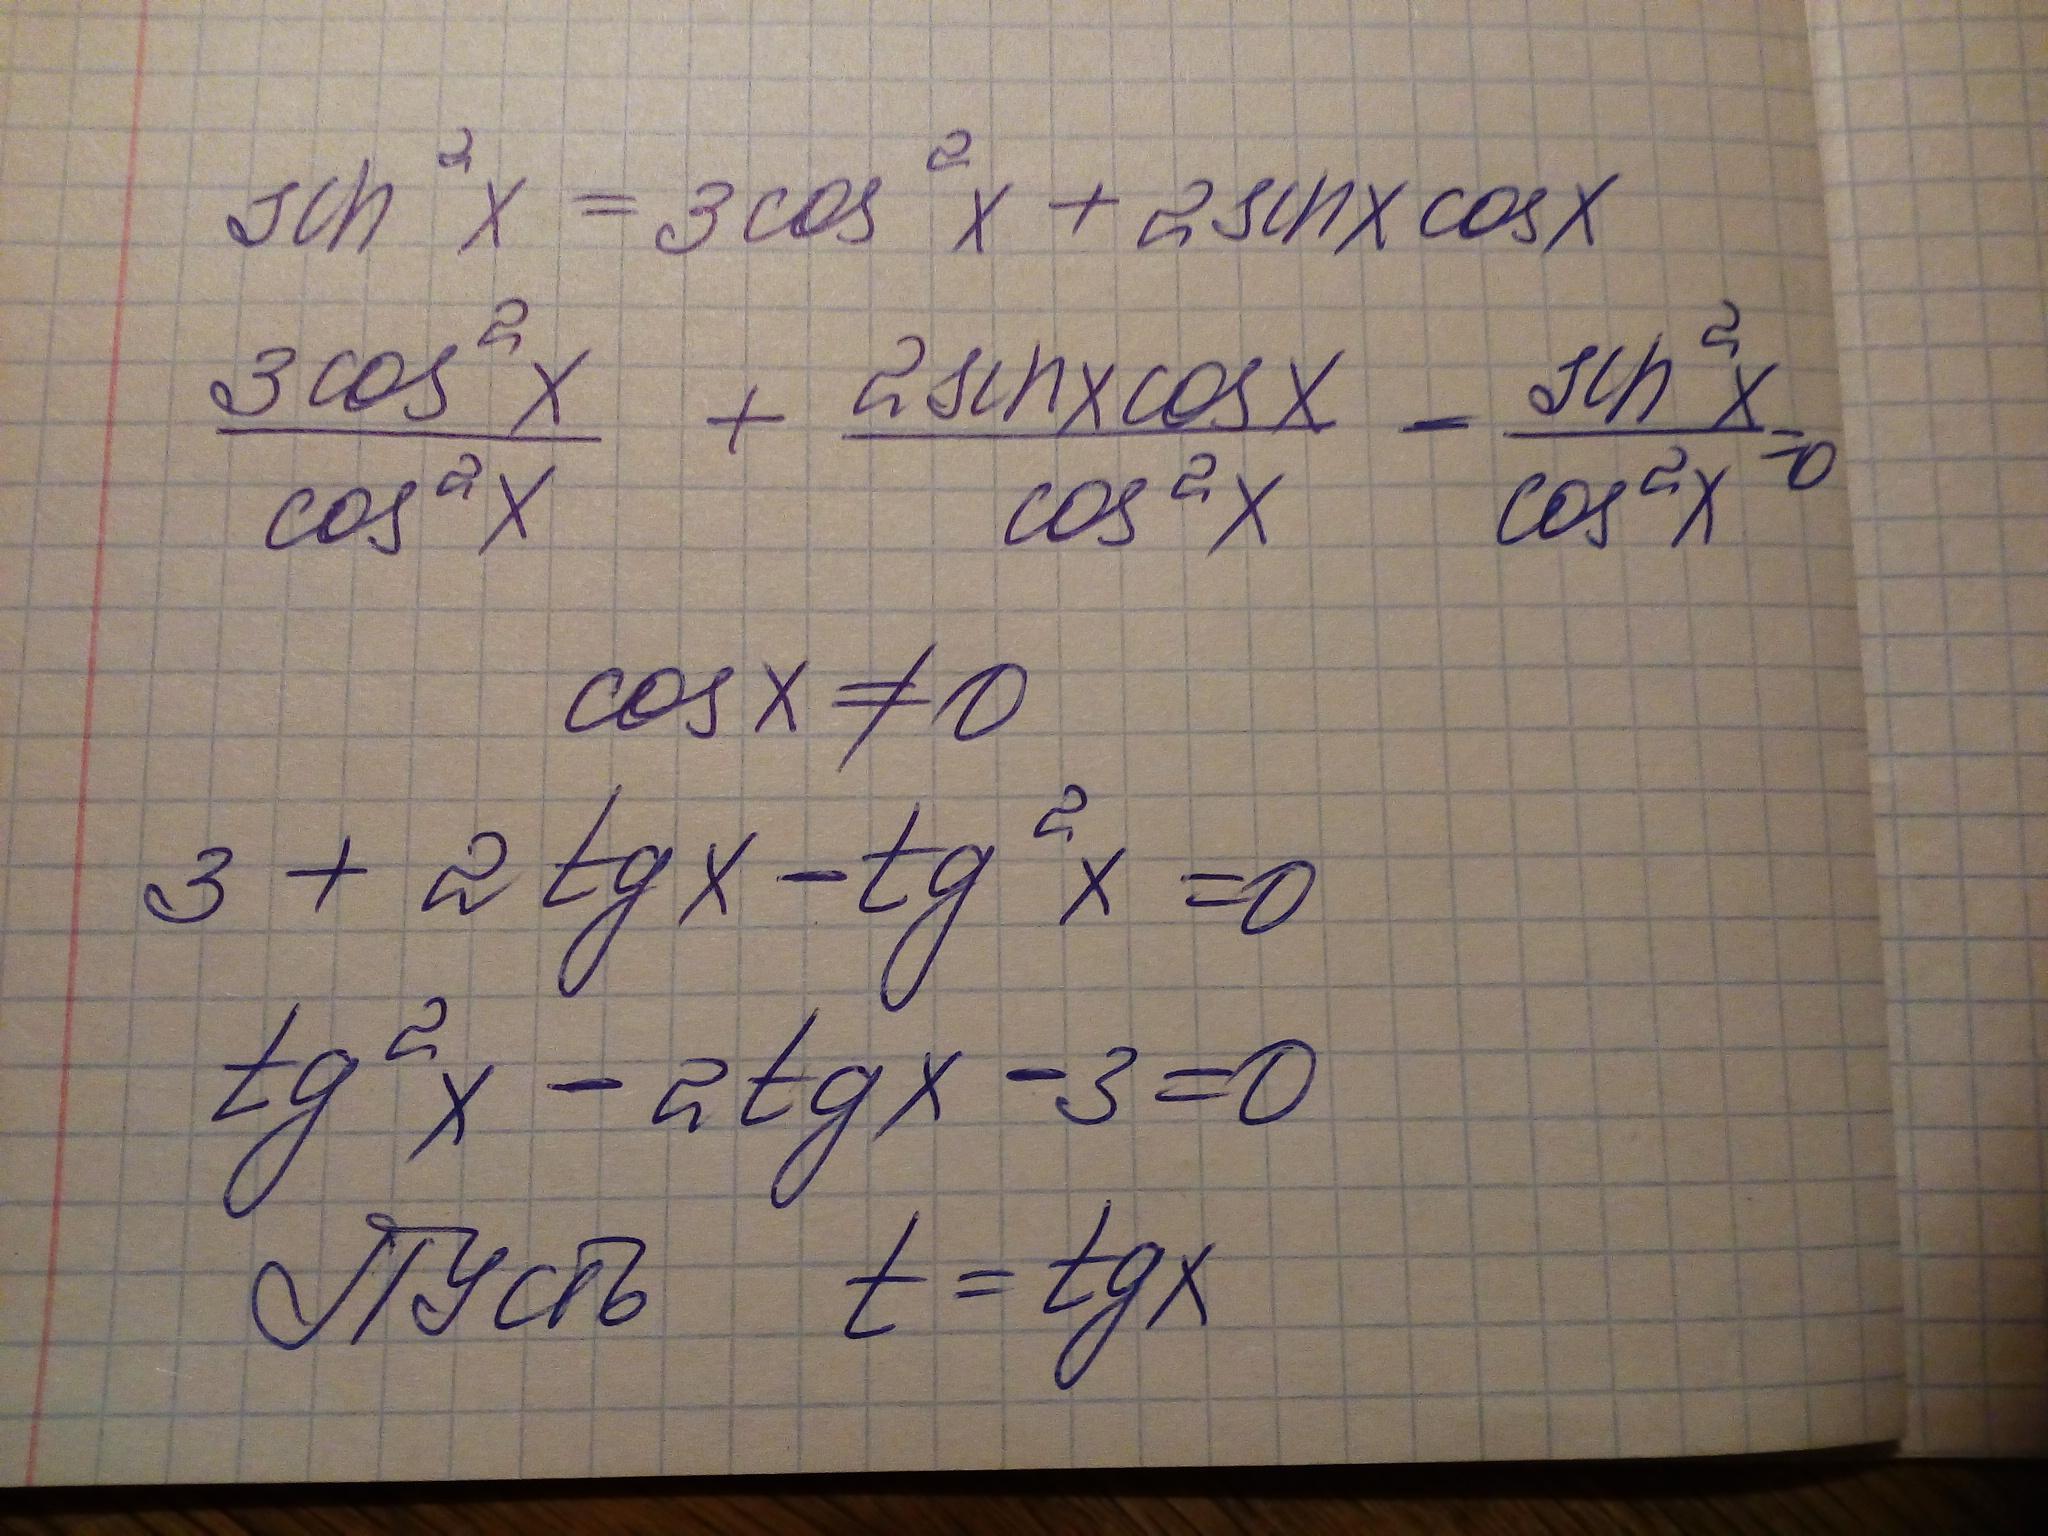 sin²x = 3cos²x + 2sinxcosx
3cos²x/cos²x + 2sinxcosx/cos²x - sin²x/cos²x = 0
cosx ≠ 0
3 + 2tgx - tg²x = 0
tg²x - 2tgx - 3 = 0
Пусть t = tgx